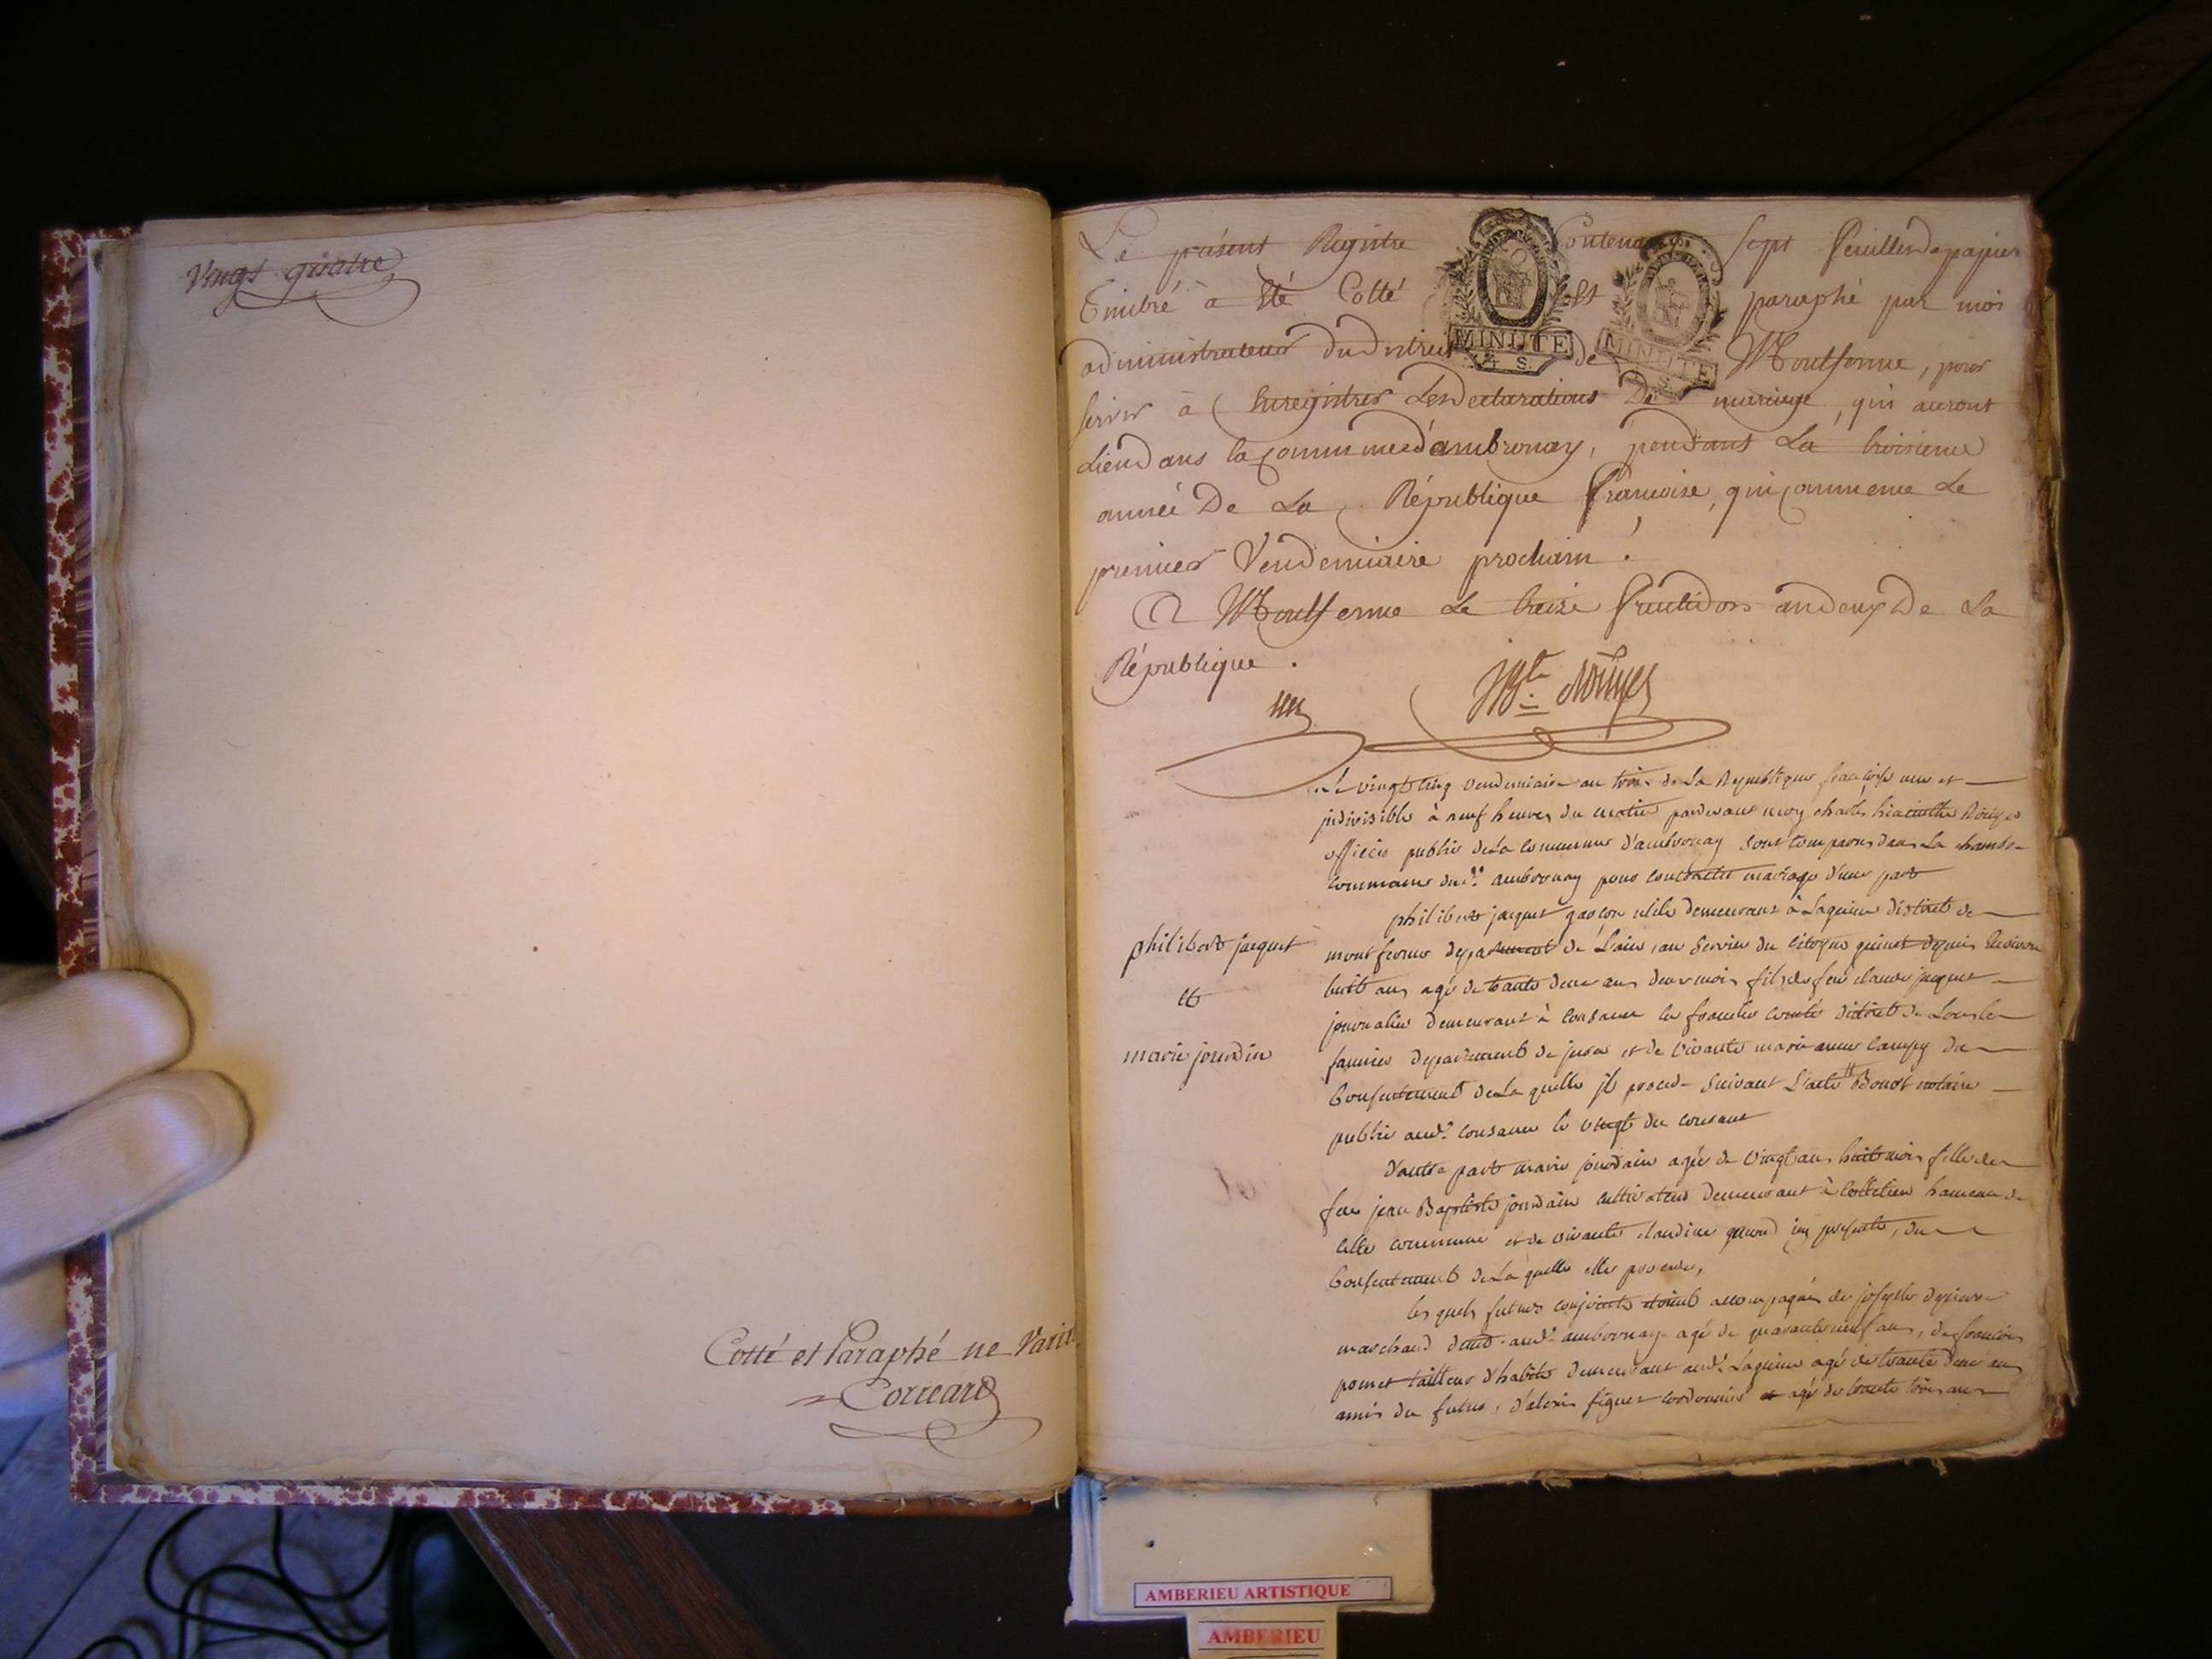 Vingt quatre
Cotté et Paraphé ne Varie
Le présent Registre Contenant sept feuilles de papier
Timbré à été Cotté et paraphé par moi
administrateur du district de Montferme, pour
servir à Enregistrer Les declarations De mariage, qui auront
Lieu dans la Commune d'ambronay, pendant La troisieme
année De La République francoise, qui commence Le
premier Vendemiaire prochain.
A Montferme Le treize fructidor an deux De La
République.
MINUTE
4 S.
MINUTE
Le vingt cinq vendemiaire an trois de La Republique françoise une et
indivisible à neuf heures du matin pardevant moy charles hiacinthe
officier public de La commune d'ambronay sont comparus dans La chambre
commune dud. ambronay pour contracter mariage d'une part
philibert jacquet garçon demeurant à Lagnieu district de
montferme departement de L'ain, au service du citoyen depuis Environ
huit ans agé de trante deux ans deux mois fils de feu claude jacquet
journalier demeurant à en franche comté district de Lons le
saunier departement de jura et de vivante marie anne
Consentement de La quelle il procede suivant L'acte notaire
public aud. le vingt du courant
philibert jacquet
et
marie jourdin
D'autre part marie jourdain agée de vingt ans huit mois fille de
feu jean Baptiste jourdain cultivateur demeurant à hameau de
cette commune et de vivante claudine presente, du
Consentement de La quelle elle procede,
les quels futurs conjoints etoient accompagnés de joseph
marchand aud. ambronay agé de quarante neuf ans, de francois
tailleur d'habits demeurant aud. Lagnieu agé de trante deux ans
amis du futur, cordonnier agé de trante trois ans
AMBERIEU ARTISTIQUE
AMBERIEU